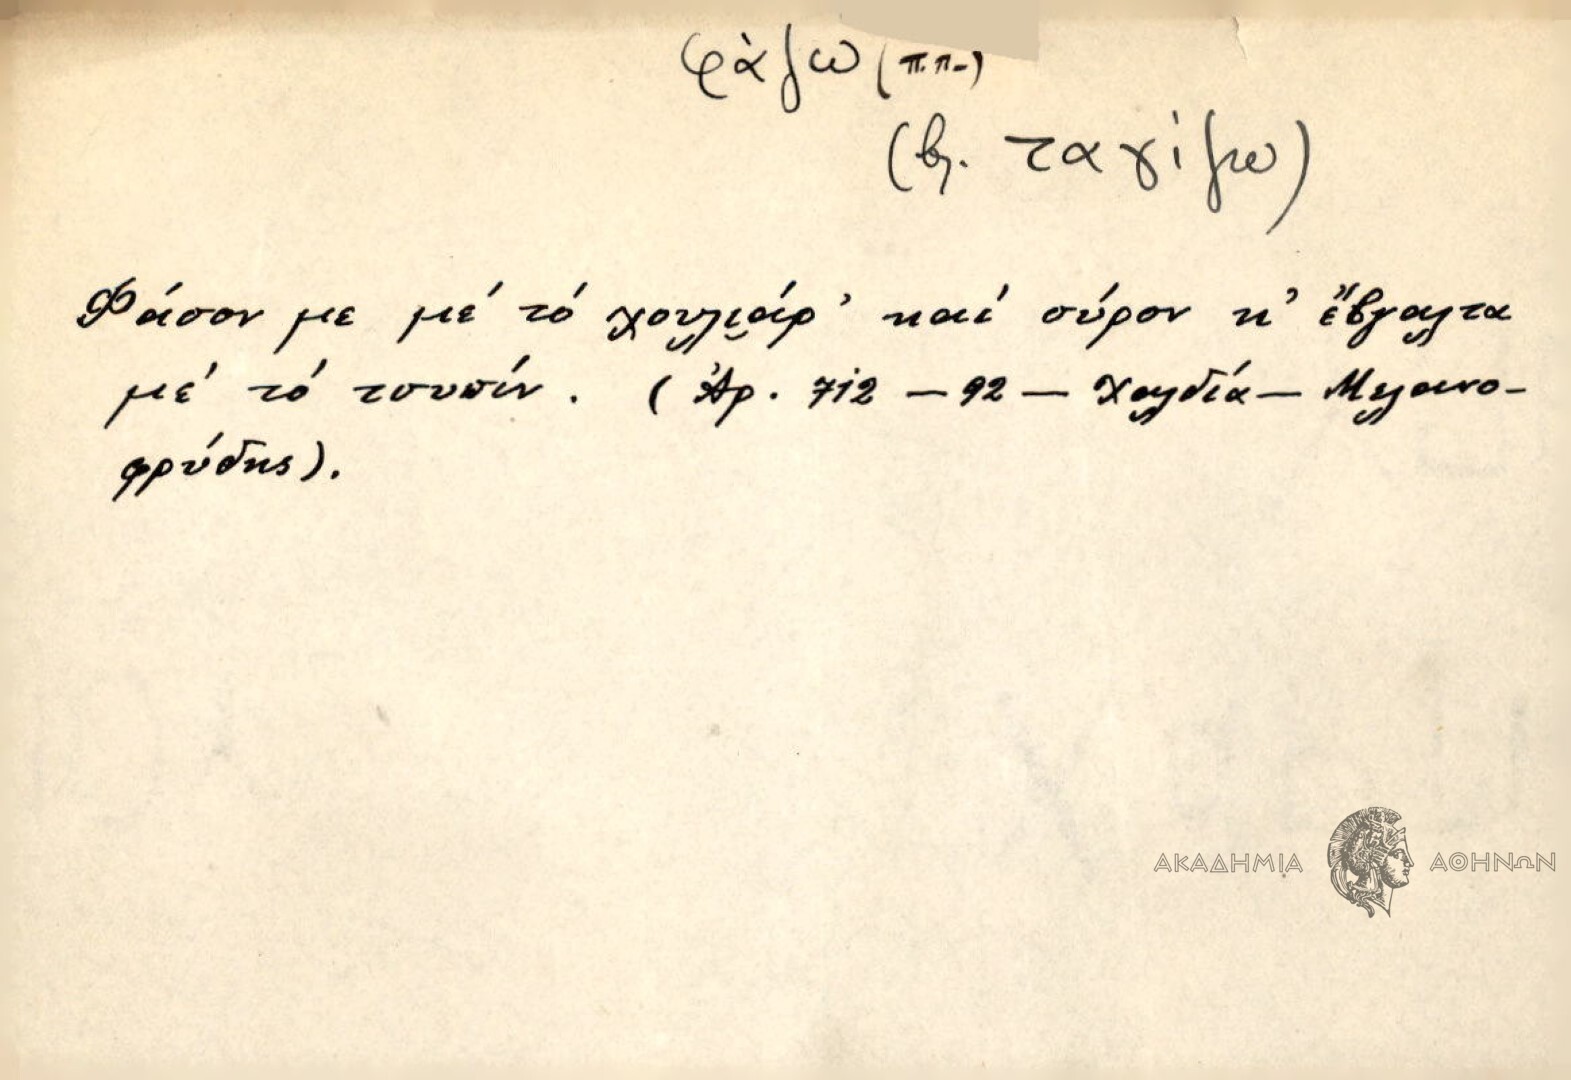 φάζω (π.π.)
(βλ. ταγίζω)
Φάσον με μέ τό χουλιάρ' καί σύρον κ' ἔβγαλτα
μέ τό τσυπίν. (Ἀρ. 712 – 92 – Χαλδία – Μελανο-
φρύδης).
ΑΚΑΔΗΜΙΑ ΑΘΗΝΩΝ